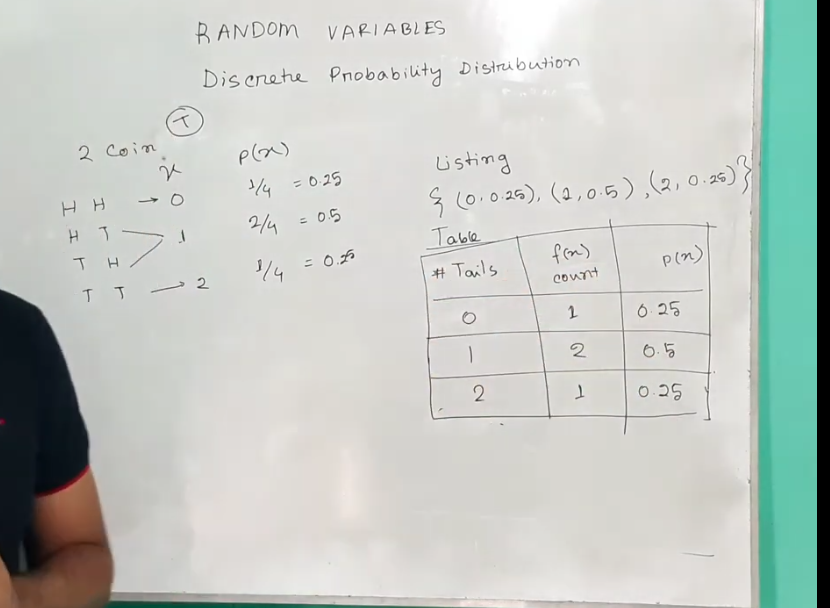 RANDOM VARIABLES
Discrete Probability Distribution
T
2 coin
x p(x)
H H → 0 1/4 = 0.25
H T 1 2/4 = 0.5
T H
T T → 2 1/4 = 0.25
Listing
{ (0, 0.25), (1, 0.5), (2, 0.25) }
Table
# Tails f(x) count p(x)
0 1 0.25
1 2 0.5
2 1 0.25